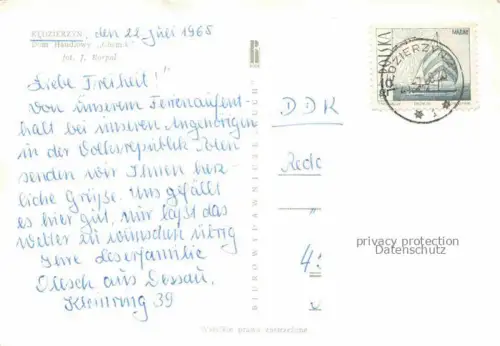 KĘDZIERZYN, den 22. Juli 1965
Dom Handlowy „Chemik”
fot. J. Korpal
"Liebe Freiheit!"
Von unserem Ferienaufent-
halt bei unseren Angehörigen
in der Volksrepublik Polen
senden wir Ihnen herz-
liche Grüße. Uns gefällt
es hier gut, nur läßt das
Wetter zu wünschen übrig
Ihre Leserfamilie
Olesch aus Dessau,
Kleinring 39
BIURO WYDAWNICZE RUCH
Wszelkie prawa zastrzeżone
POLSKA
10 gr
KĘDZIERZYN
DDR
Reda
4
privacy protection
Datenschutz